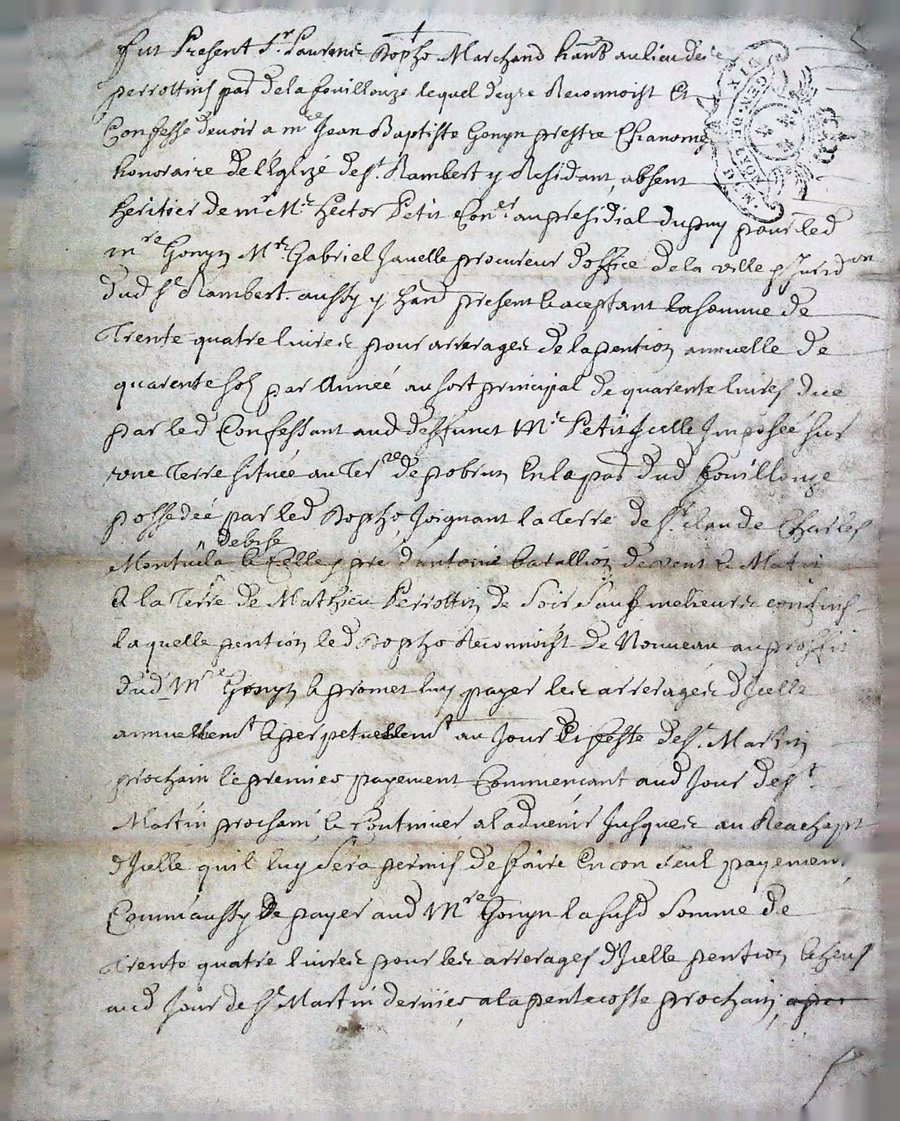 fut Present Sr. Laurens Sopho Marchand hant au lieu des
perrottins par de la fouillouze lequel de gre Reconnoist Et
Confesse devoir a mre Jean Baptiste Gonyn prestre Chanoine
honoraire de l'Eglize de St. Rambert y Residant, absent
heritier de mr Me hector Petit Coner. au presidial du puy pour led
mre Gonyn Me Gabriel Javelle procureur d'office de la ville & Jurid on
dud St Rambert. aussy y hant present & aceptant la somme de
Trente quatre livres pour arrerages de la pention annuelle de
quarente sols par Année au sort principal de quarente livres
par led Confessant aud deffunct Mre Petit Jcelle Jmposée sur
une Terre située au Terre de En la par dud fouillouze
possedée par led Sopho Joignant la Terre de Sr claude Charles
de bise
& celle & pré d'antoine batallion de vent & Matin
& la Terre de Mathieu Perrottin de Soir Sauf meilleurs confins
laquelle pention led Sopho Reconnoist de Nouveau au proffit
dud Mre Gonyn & promet luy payer les arrerages d'Jcelle
annuellemt & perpetuellemt au Jour & feste de St. Martin
prochain le premier payement Commencant aud Jour de St
Martin prochain & continuer a ladvenir Jusques au Reachapt
d'Jcelle quil luy sera permis de faire En un seul payement
Comm'aussy de payer aud Mre Gonyn la susd somme de
Trente quatre livres pour les arrerages d'Jcelle pention
aud Jour de St Martin dernier, a la pentecoste prochain,